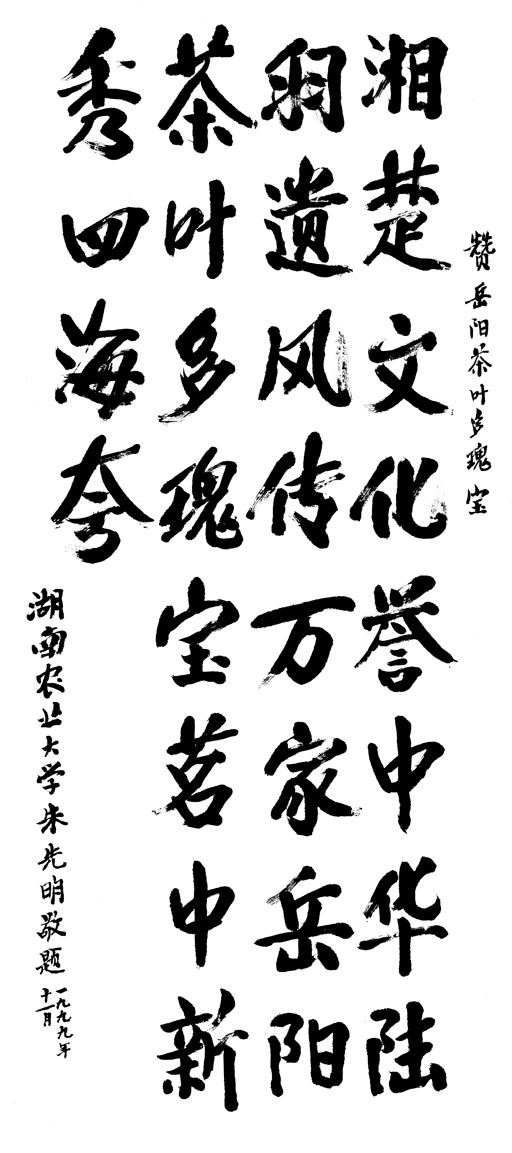 赞岳阳茶叶多瑰宝
湘楚文化誉中华陆
羽遗风传万家岳阳
茶叶多瑰宝茗中新
秀四海夸
湖南农业大学朱先明敬题
一九九九年
十一月